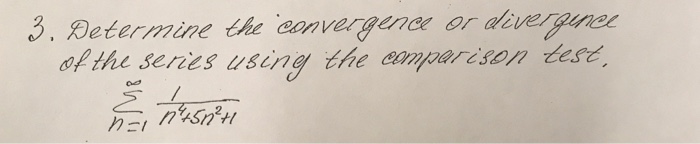 3. Determine the convergence or divergence
of the series using the comparison test.
∞
Σ 1
n=1 n⁴+5n²+1